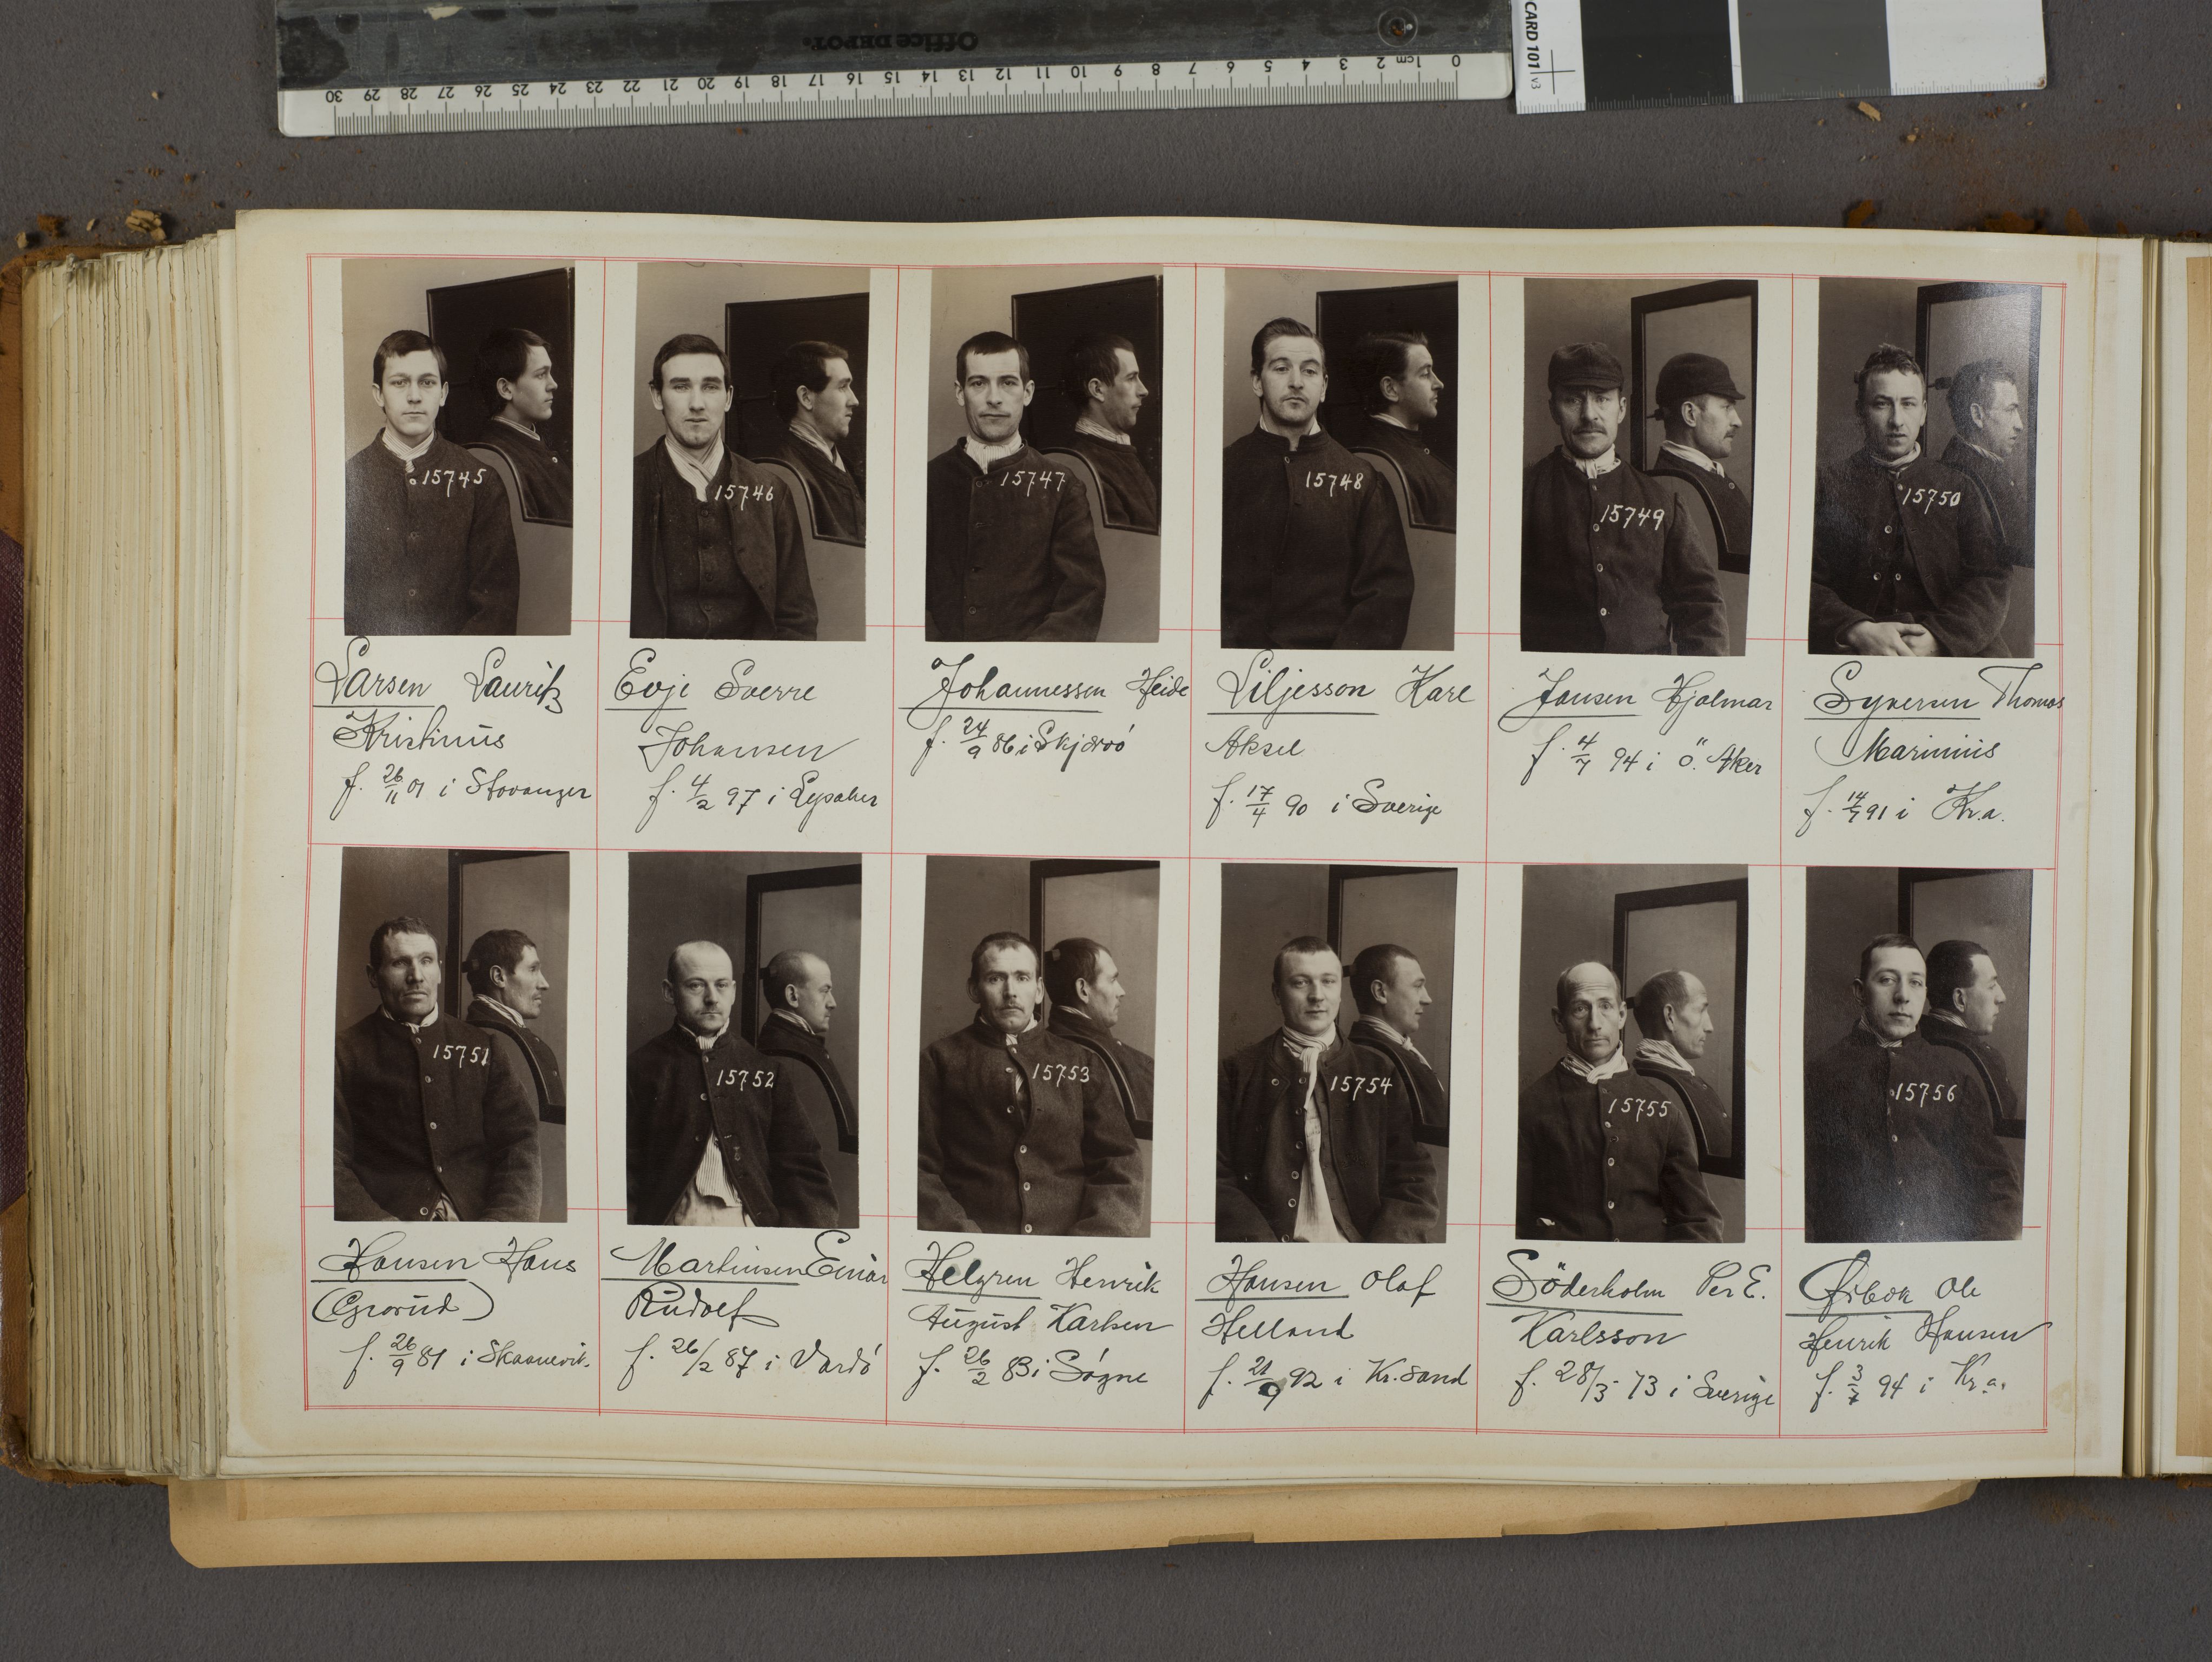 Office DEPOT.
0 1cm 2 3 4 5 6 7 8 9 10 11 12 13 14 15 16 17 18 19 20 21 22 23 24 25 26 27 28 29 30
CARD 101 v3
15745
15746
15747
15748
15749
15750
Larsen Lauritz
Kristinus
f. 26/11 01 i Stavanger
Evje Sverre
Johansen
f. 4/2 97 i Lysaker
Johannessen Heide
f. 24/9 86 i Skjærvö
Liljesson Karl
Aksel
f. 17/4 90 i Sverige
Jansen Hjalmar
f. 4/7 94 i Ö. Aker
Syversen Thomas
Marinius
f. 14/7 91 i Kr.a.
15751
15752
15753
15754
15755
15756
Hansen Hans
(Grorud)
f. 26/9 81 i Skaanevik.
Martinsen Einar
Rudolf
f. 26/2 87 i Vardö
Helgren Henrik
August Karlsen
f. 26/2 83 i Søgne
Hansen Olaf
Helland
f. 21/9 92 i Kr.sand
Söderholm Per E.
Karlsson
f. 28/3 - 73 i Sverige
Ole
Henrik Hansen
f. 3/7 94 i Kr.a.